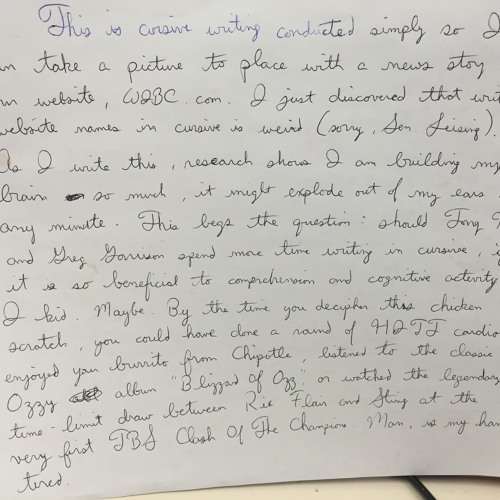 This is cursive writing conducted simply so I
take a picture to place with a news stoy
website, WIBC.com. I just discovered that
website names in cursive is weird (sorry, Sen. Leising)
As I write this, research shows I am building my
brain so much, it might explode out of my ears
any minute. This begs the question: should Tony
and Greg Garrison spend more time writing in cursive,
it is so beneficial to comprehension and cognitive activity
I kid. Maybe. By the time you decipher this chicken
scratch, you could have done a round of cardio
enjoyed your burrito from Chipotle, listened to the classic
Ozzy album "Blizzard of Ozz" or watched the legendary
time-limit draw between Ric Flair and Sting at the
very first TBS Clash Of The Champions. Man, is my
tired.